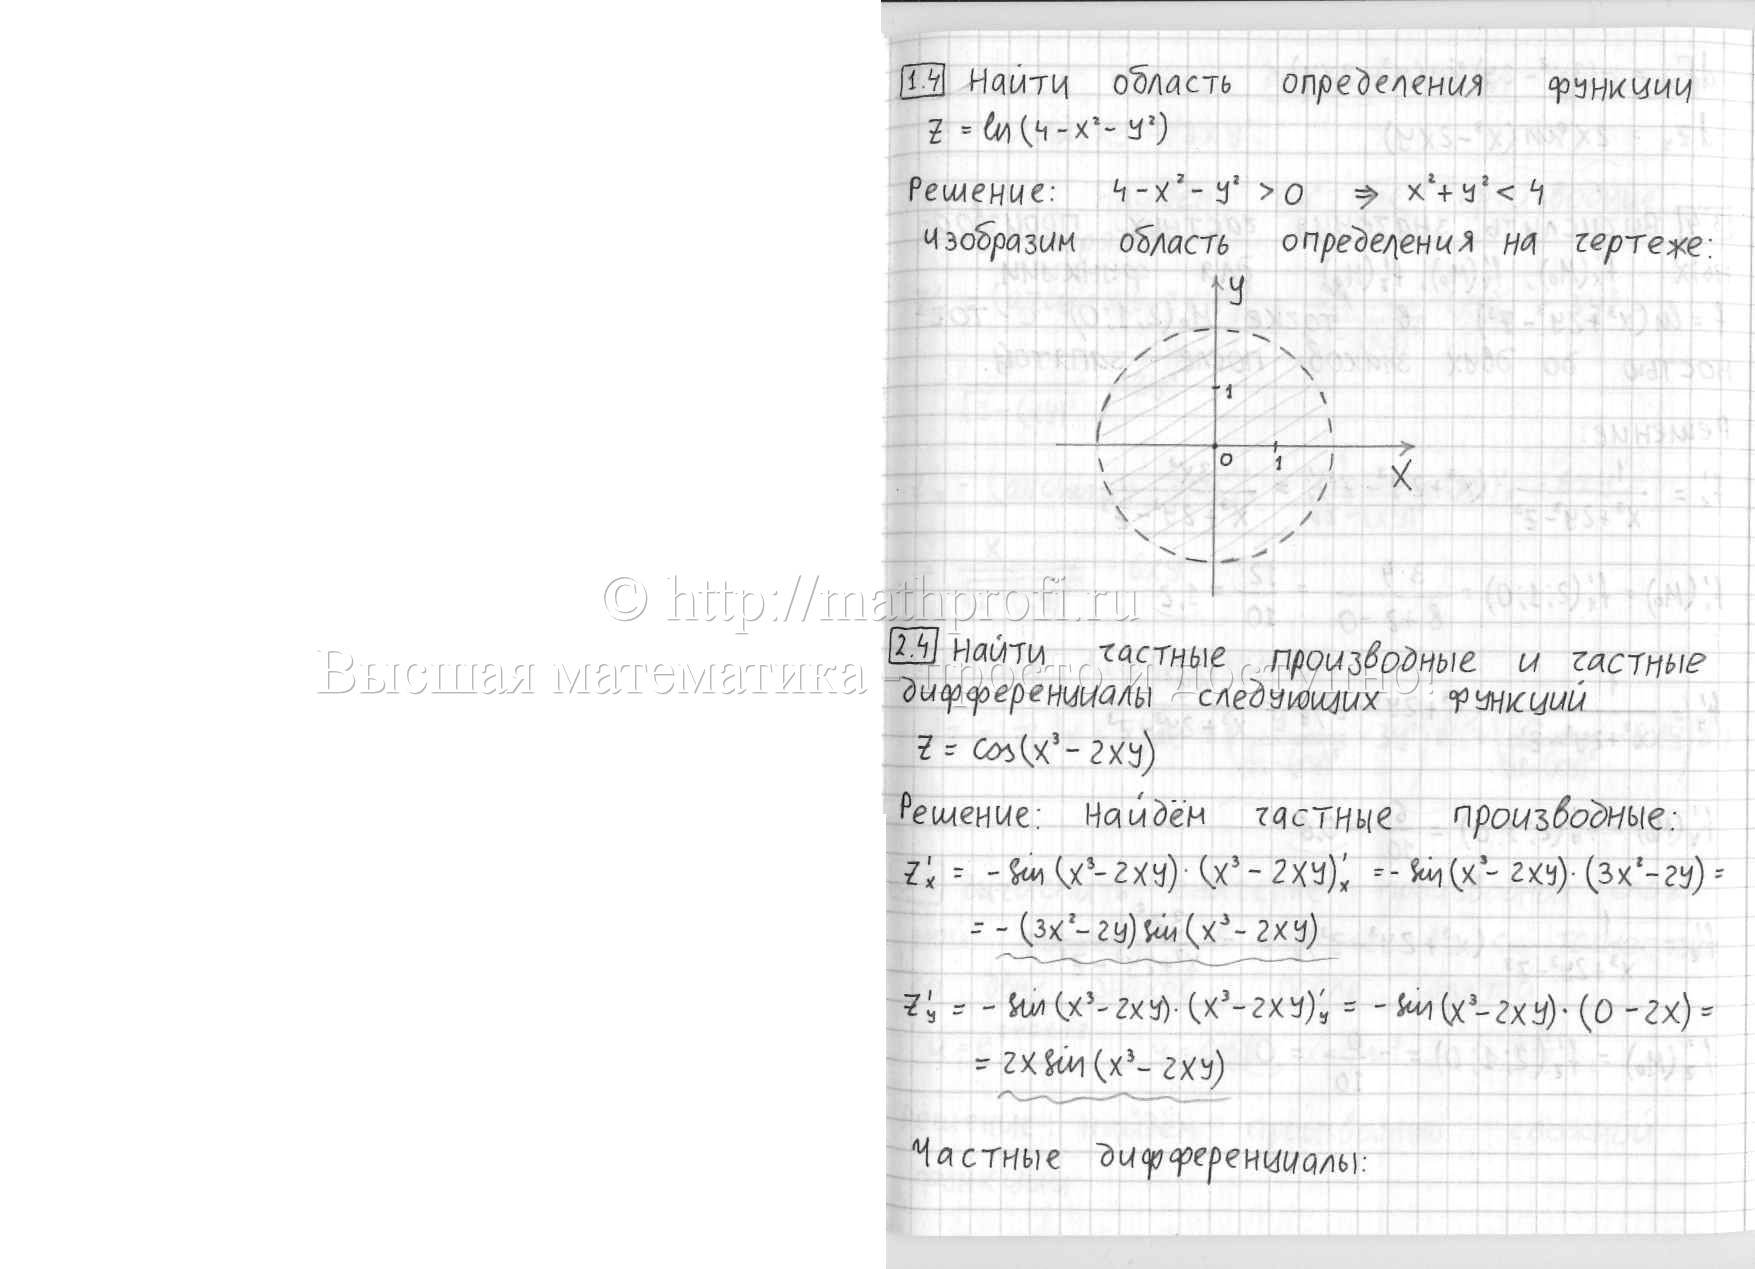 1.4 Найти область определения функции
z = ln(4 - x² - y²)
Решение: 4 - x² - y² > 0 ⇒ x² + y² < 4
изобразим область определения на чертеже:
y
1
0 1
x
© http://mathprofi.ru
2.4 Найти частные производные и частные
Высшая математика – просто и доступно!
дифференциалы следующих функций
z = cos(x³ - 2xy)
Решение: Найдём частные производные:
z'ₓ = - sin(x³ - 2xy) · (x³ - 2xy)'ₓ = - sin(x³ - 2xy) · (3x² - 2y) =
= - (3x² - 2y) sin(x³ - 2xy)
z'_y = - sin(x³ - 2xy) · (x³ - 2xy)'_y = - sin(x³ - 2xy) · (0 - 2x) =
= 2x sin(x³ - 2xy)
Частные дифференциалы: